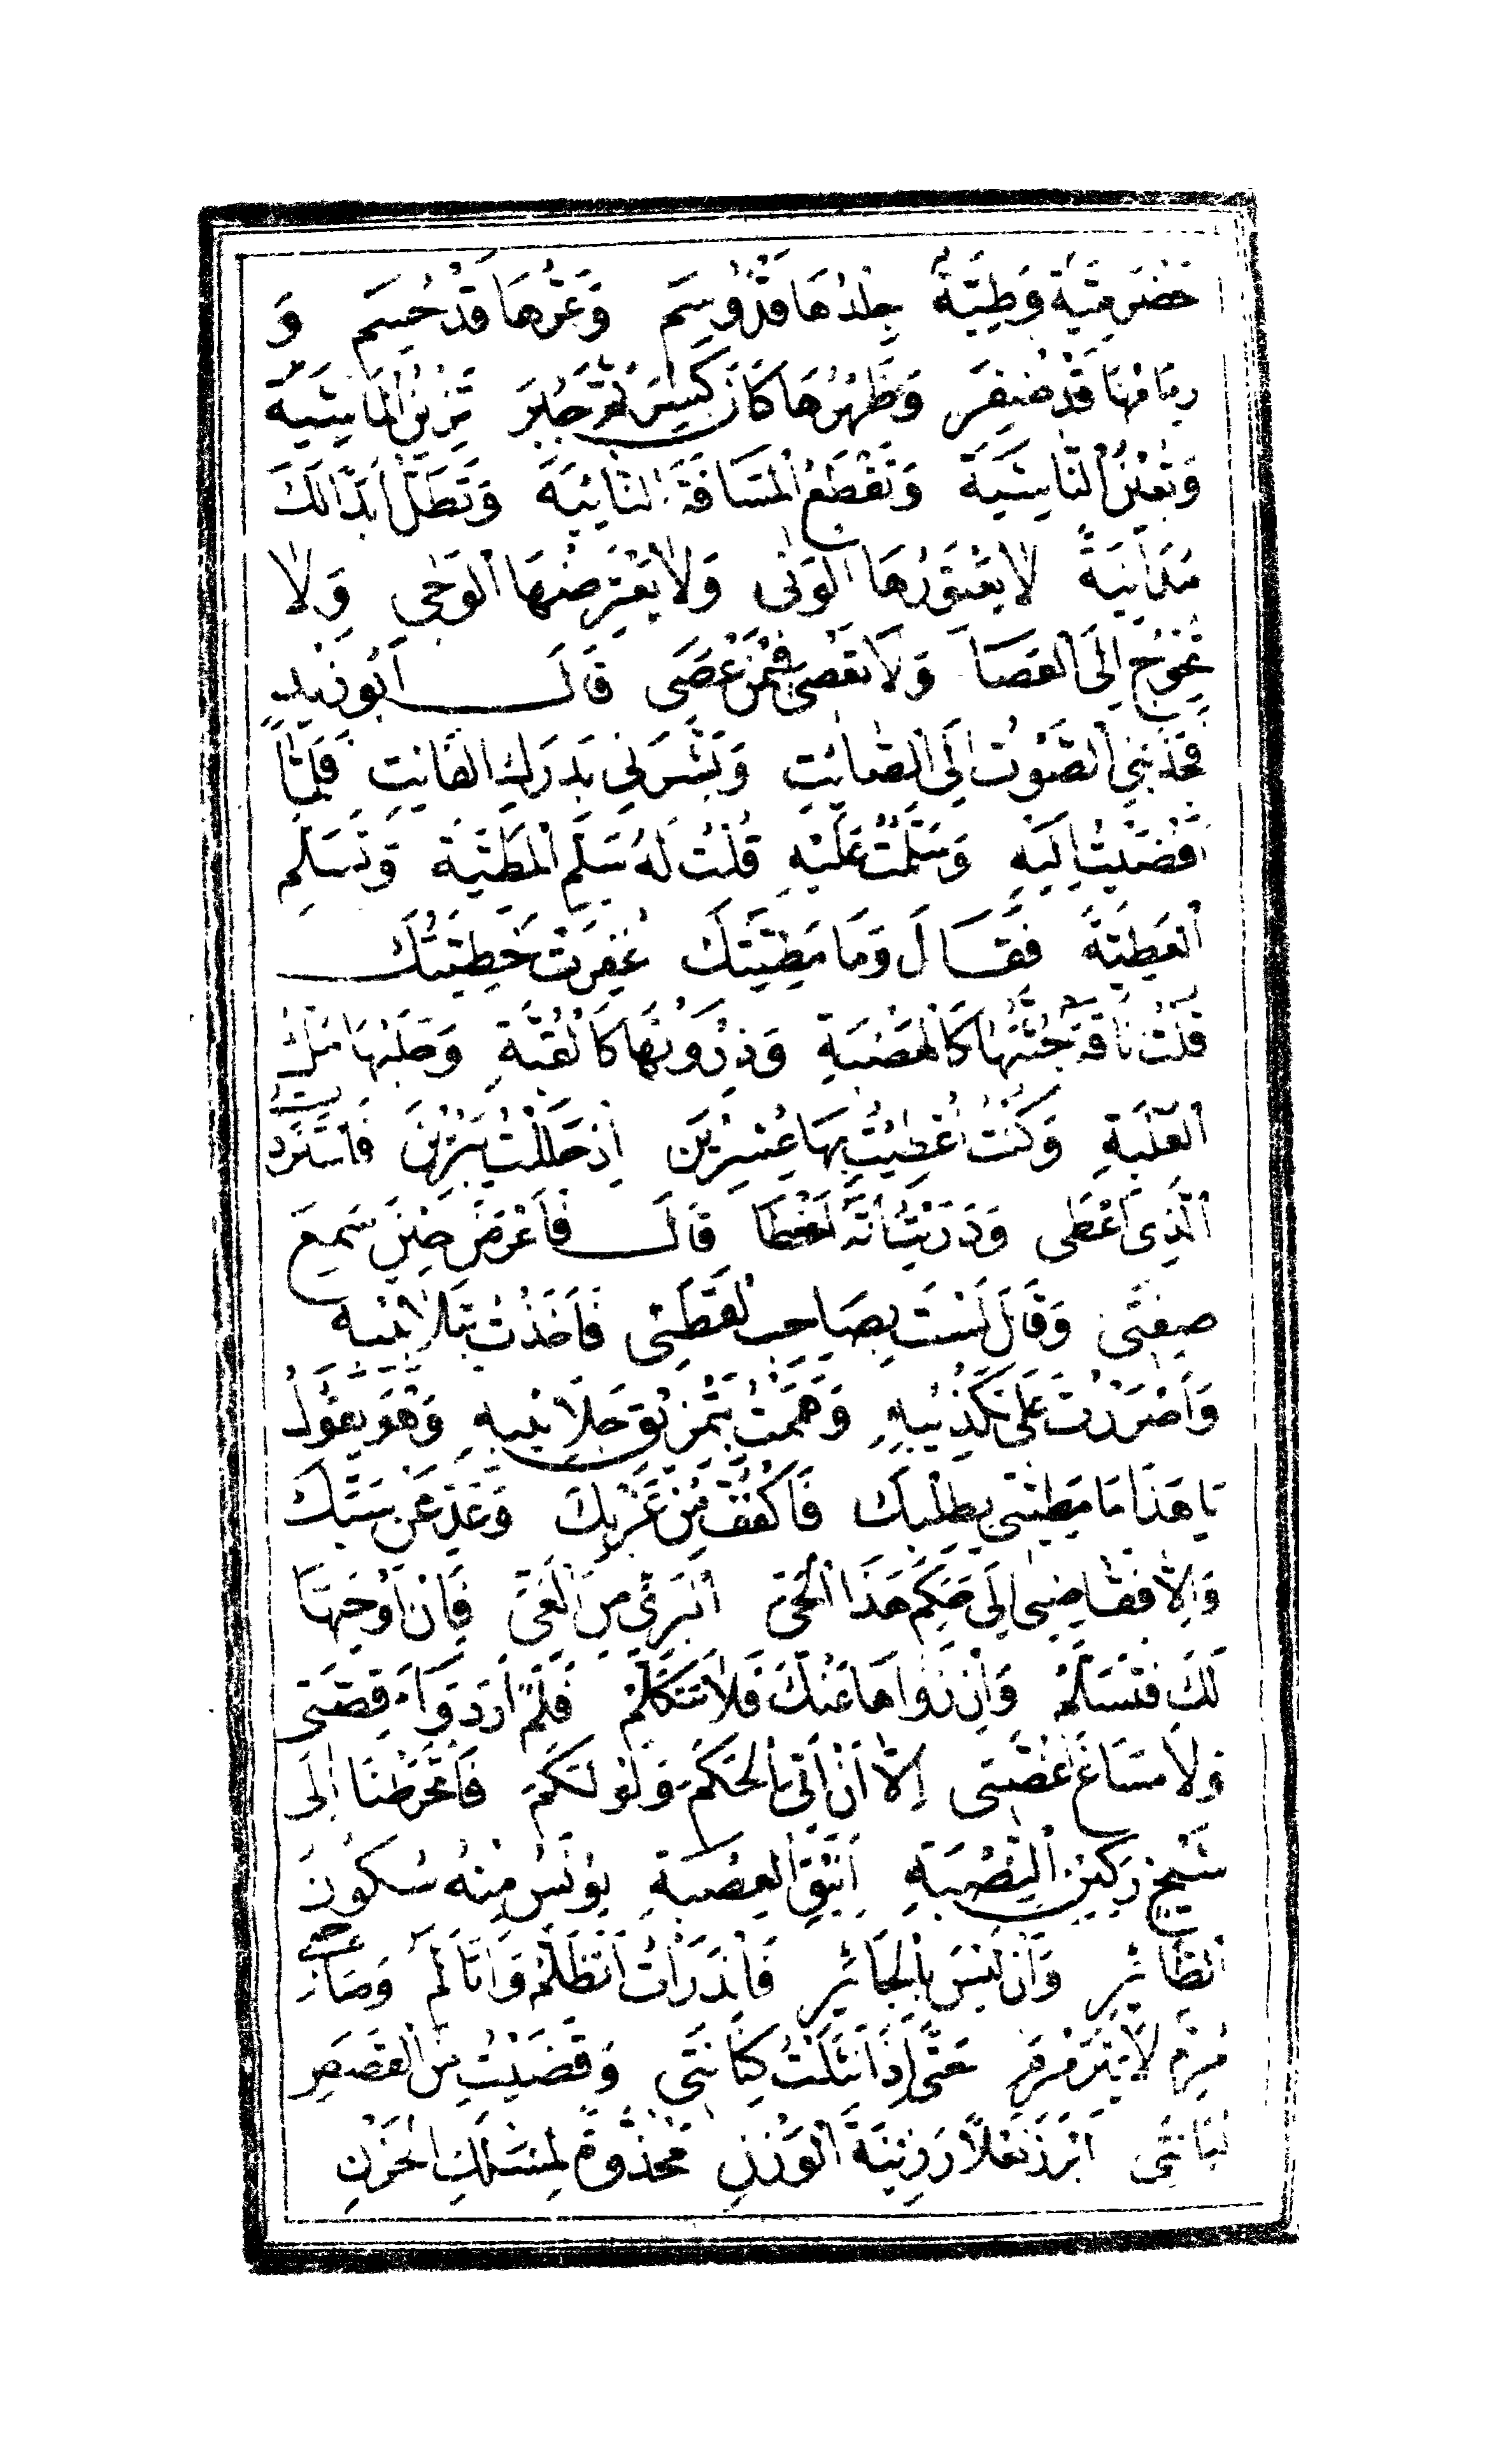 حَضْرَمِيَّة وَطِيَّةٌ جِلْدُهَا قَدْ وُسِمَ وَعَرُّهَا قَدْ حُسِمَ وَ
زِمَامُهَا قَدْ ضُفِرَ وَظَهْرُهَا كَانَ كُسِرَ ثُمَّ جُبِرَ تَزِينُ الْمَاشِيَة
وَتُعِينُ النَّاشِيَةَ وَتَقْطَعُ الْمَسَافَةَ النَّائِيَةَ وَتَظَلُّ أَبَدًا لَكَ
مُدَانِيَةً لَا يَعْتَوِرُهَا الْوَنَى وَلَا يَعْتَرِضُهَا الْوَجَى وَلَا
تُحْوِجُ إِلَى الْعَصَا وَلَا تَعْصِي فِيمَنْ عَصَى قَالَ أَبُو زَيْد
فَجَذَبَنِي الصَّوْتُ إِلَى الصَّائِتِ وَبَشَّرَنِي بِدَرَكِ الْفَائِتِ فَلَمَّا
أَفْضَيْتُ إِلَيْهِ وَسَلَّمْتُ عَلَيْهِ قُلْتُ لَهُ سَلِّمِ الْمَطِيَّةَ وَتَسَلَّمِ
الْعَطِيَّةَ فَقَالَ وَمَا مَطِيَّتُكَ غُفِرَتْ خَطِيَّتُكَ
قُلْتُ نَاقَةٌ جُثَّتُهَا كَالْهَضْبَةِ وَذِرْوَتُهَا كَالْقُبَّةِ وَحَلَبُهَا مِلْءُ
الْعُلْبَةِ وَكُنْتُ أُعْطِيتُ بِهَا عِشْرِينَ إِذْ حَلَلْتُ يَبْرِينَ فَاسْتَزَدْتُ
الَّذِي أَعْطَى وَدَرَيْتُ أَنَّهُ أَخْطَا قَالَ فَأَعْرَضَ حِينَ سَمِعَ
صِفَتِي وَقَالَ لَسْتَ بِصَاحِبِ لُقَطَتِي فَأَخَذْتُ بِتَلَابِيبِه
وَأَصْرَرْتُ عَلَى تَكْذِيبِهِ وَهَمَمْتُ بِتَمْزِيقِ جَلَابِيبِهِ وَهُوَ يَقُولُ
يَا هَذَا مَا مَطِيَّتِي بِطِلْبِكَ فَاكْفُفْ مِنْ غَرْبِكَ وَعَدِّ عَنْ سَبِّكَ
وَإِلَّا فَقَاضِنِي إِلَى حَكَمِ هَذَا الْحَيِّ الْبَرِيِّ مِنَ الْغَيِّ فَإِنْ أَوْجَبَهَا
لَكَ فَتَسَلَّمْ وَإِنْ زَوَاهَا عَنْكَ فَلَا تَتَكَلَّمْ فَلَمْ أَرَ دَوَاءَ قِصَّتِي
وَلَا مَسَاغَ غُصَّتِي إِلَّا أَنْ أَتِيَ الْحَكَمَ وَلَوْ لَكَمَ فَانْخَرَطْنَا إِلَى
شَيْخٍ رَكِينِ النِّصْبَةِ أَنِيقِ الْعِصْبَةِ يُؤنَسُ مِنْهُ سُكُونُ
الطَّائِرِ وَأَنْ لَيْسَ بِالْجَائِرِ فَانْدَرَأْتُ أَتَظَلَّمُ وَأَتَأَلَّمُ وَصَاحِبِي
مُرِمٌّ لَا يَتَرَمْرَمُ حَتَّى إِذَا نَثَلْتُ كِنَانَتِي وَقَضَيْتُ مِنَ الْقَصَصِ
لُبَانَتِي أَبْرَزَ نَعْلًا رَزِينَةَ الْوَزْنِ مَحْذُوَّةً لِمَسْلَكِ الْحَزْنِ